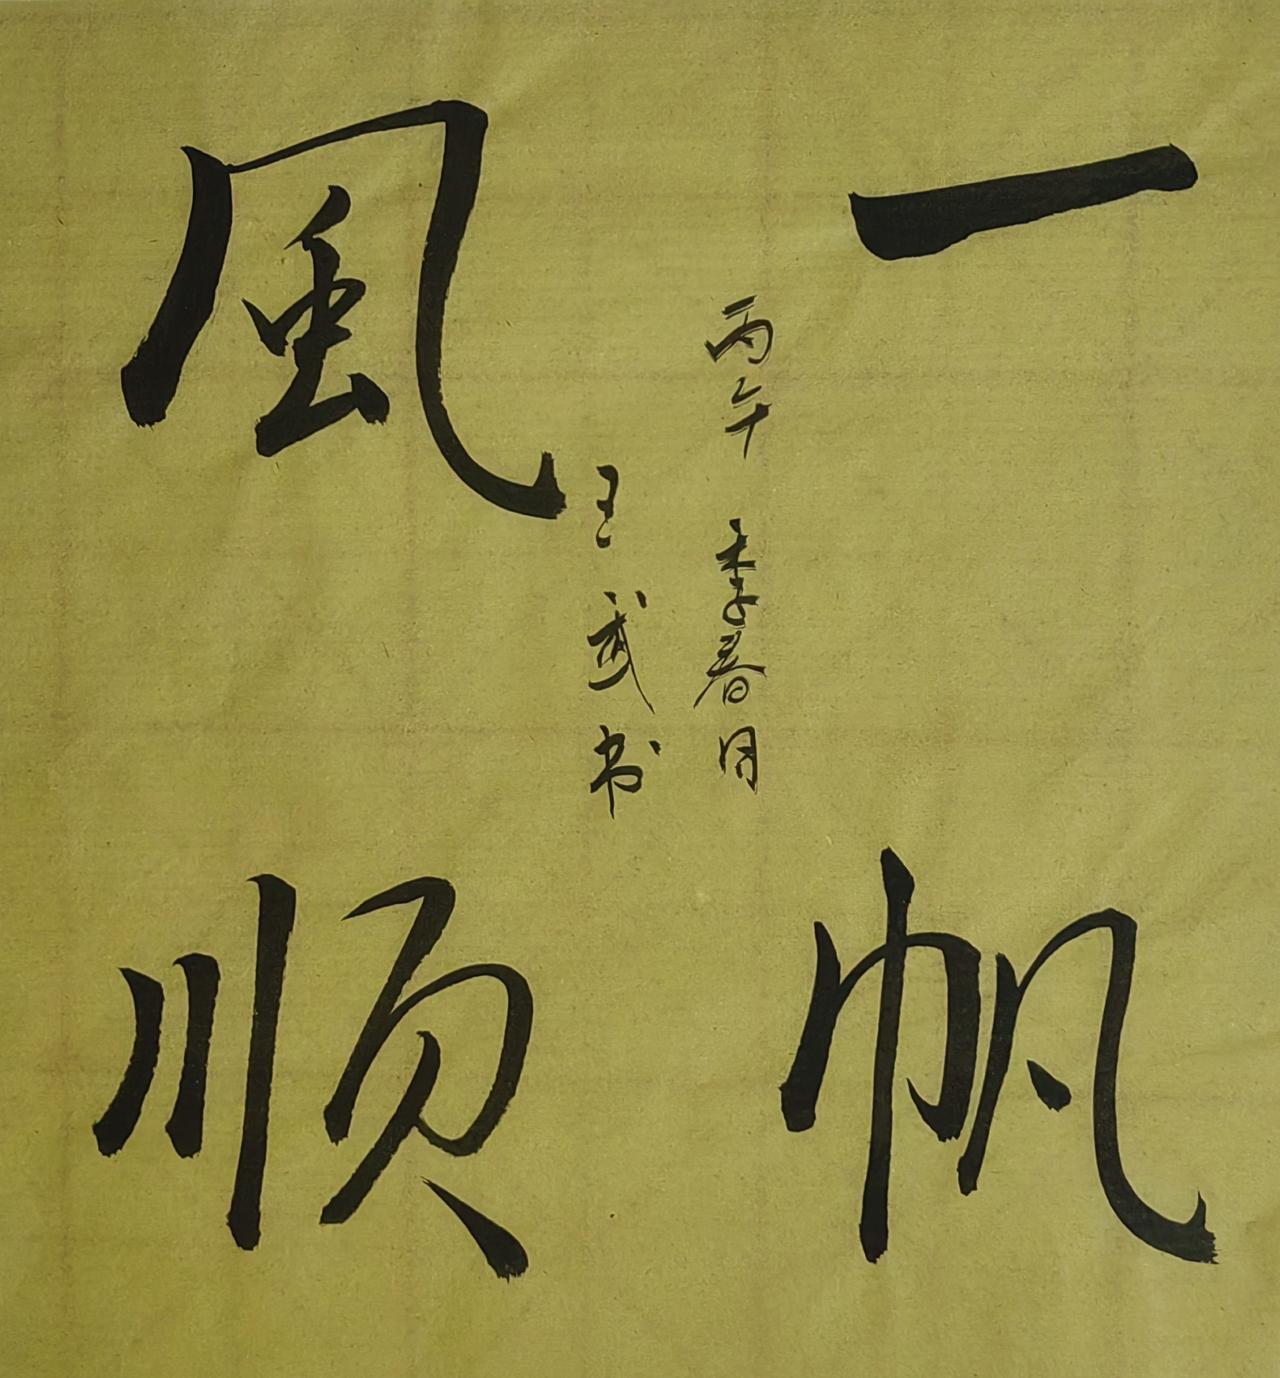 一帆
風顺
丙午季春月
王武书